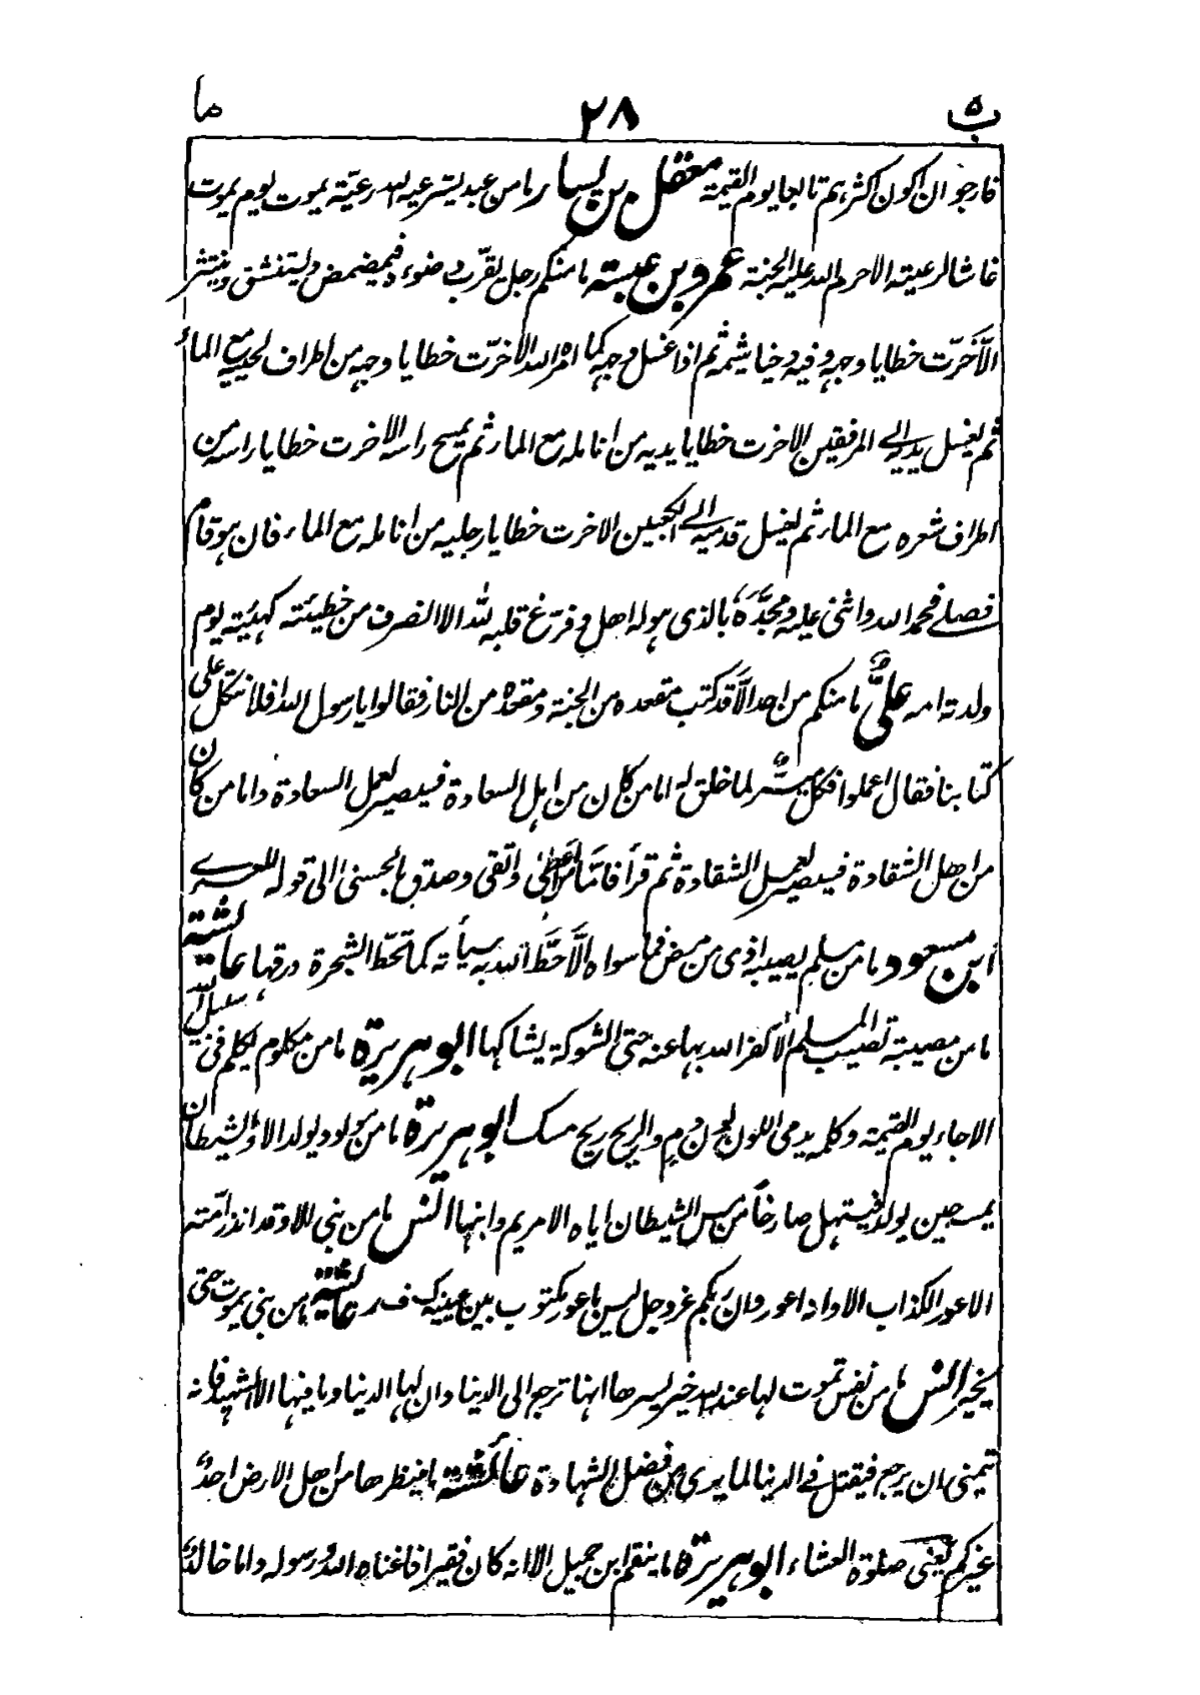 ب ٥ ٢٨ ما
فارجو ان اكون اكثرهم تابعا يوم القيمة معقل بن يسار ما من عبد يسترعيه الله رعيّة يموت يوم يموت
غاشا لرعيته الا حرم الله عليه الجنة عمرو بن عبسة ما منكم رجل يقرّب وضوءه فيمضمض ويستنشق وينتثر
الّا خرّت خطايا وجهه وفيه وخياشيمه ثم اذا غسل وجهه كما امره الله الا خرّت خطايا وجهه من اطراف لحيته مع الماء
ثم يغسل يديه الى المرفقين الا خرت خطايا يديه من انامله مع الماء ثم يمسح راسه الا خرت خطايا راسه من
اطراف شعره مع الماء ثم يغسل قدميه الى الكعبين الا خرت خطايا رجليه من انامله مع الماء فان هو قام
فصلى فحمد الله واثنى عليه ومجّده بالذى هو له اهل وفرّغ قلبه لله الا انصرف من خطيئته كهيئته يوم
ولدته امه علىٌّ ما منكم من احد الّا قد كتب مقعده من الجنة ومقعده من النار فقالوا يا رسول الله افلا نتكل على
كتابنا فقال اعملوا فكل ميسّر لما خلق له اما من كان من اهل السعادة فيصير لعمل السعادة واما من كان
من اهل الشقادة فيصير لعمل الشقادة ثم قرأ فامّا من اعطى واتقى وصدق بالحسنى الى قوله للعسرى
ابن مسعود ما من مسلم يصيبه اذى من مرض فما سواه الّا حَطَّ الله به سيأته كما تحطّ الشجرة ورقها عائشة
ما من مصيبة تصيب المسلم الا كفر الله بها عنه حتى الشوكة يشاكها ابو هريرة ما من مكلوم يكلم فى سبيل الله
الا جاء يوم القيمة وكلمه يدمى اللون لون دم والريح ريح مسك ابو هريرة ما من مولود يولد الا والشيطان
يمسه حين يولد فيستهل صارخاً من مس الشيطان اياه الا مريم وابنها انس ما من نبى الا وقد انذر امّته
الاعور الكذاب الا وانه اعور وان ربكم عز وجل ليس باعور مكتوب بين عينيه ك ف ر عائشة ما من نبى يموت حتى
يخير انس ما من نفس تموت لها عند الله خير يسرها انها ترجع الى الدنيا وان لها الدنيا وما فيها الا الشهيد فانه
يتمنى ان يرجع فيقتل فى الدنيا لما يرى من فضل الشهادة عائشة ما ينظرها من اهل الارض احدٌ
غيركم يعنى صلوة العشاء ابو هريرة ما ينقم ابن جميل الا انه كان فقيرا فاغناه الله ورسوله واما خالدٌ